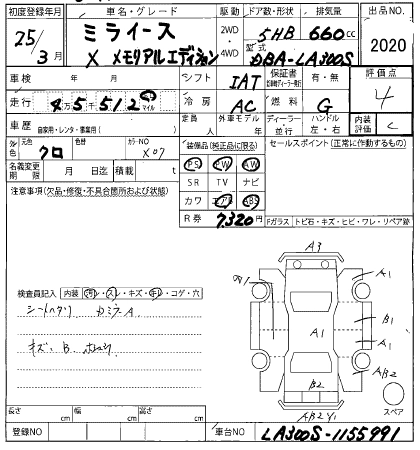 初度登録年月 車名・グレード 駆動 ドア数・形状 排気量 出品NO
25/3月 ミライース 2WD・4WD 5HB 660cc 2020
X メモリアルエディション 型式 DBA-LA300S
車検 年 月 シフト IAT 保証書 有・無 評価点 4
走行 4万5千512 マイル 冷房 AC 燃料 G
車歴 自家用・レンタ・事業用( ) 定員 人 外車モデル 年 ディーラー・並行 ハンドル 左・右 内装評価 C
外色 元色 クロ 色替 カラーNO X07 装備品(純正品に限る) セールスポイント(正常に動作するもの)
名義変更期限 月 日迄 積載 t PS PW AW
注意事項(欠品・修復・不具合箇所および状態) SR TV ナビ
カワ エアB ABS
R券 7,320円 Fガラス トビ石・キズ・ヒビ・ワレ・リペア跡
検査員記入 内装 汚レ・スレ・キズ・キレ・コゲ・穴
シートヘタリ
キズ、B、
A3
A1
A1
B1
A1
AB2
B2
スペア
長さ cm 幅 cm 高さ cm
登録NO 車台NO LA300S-1155991